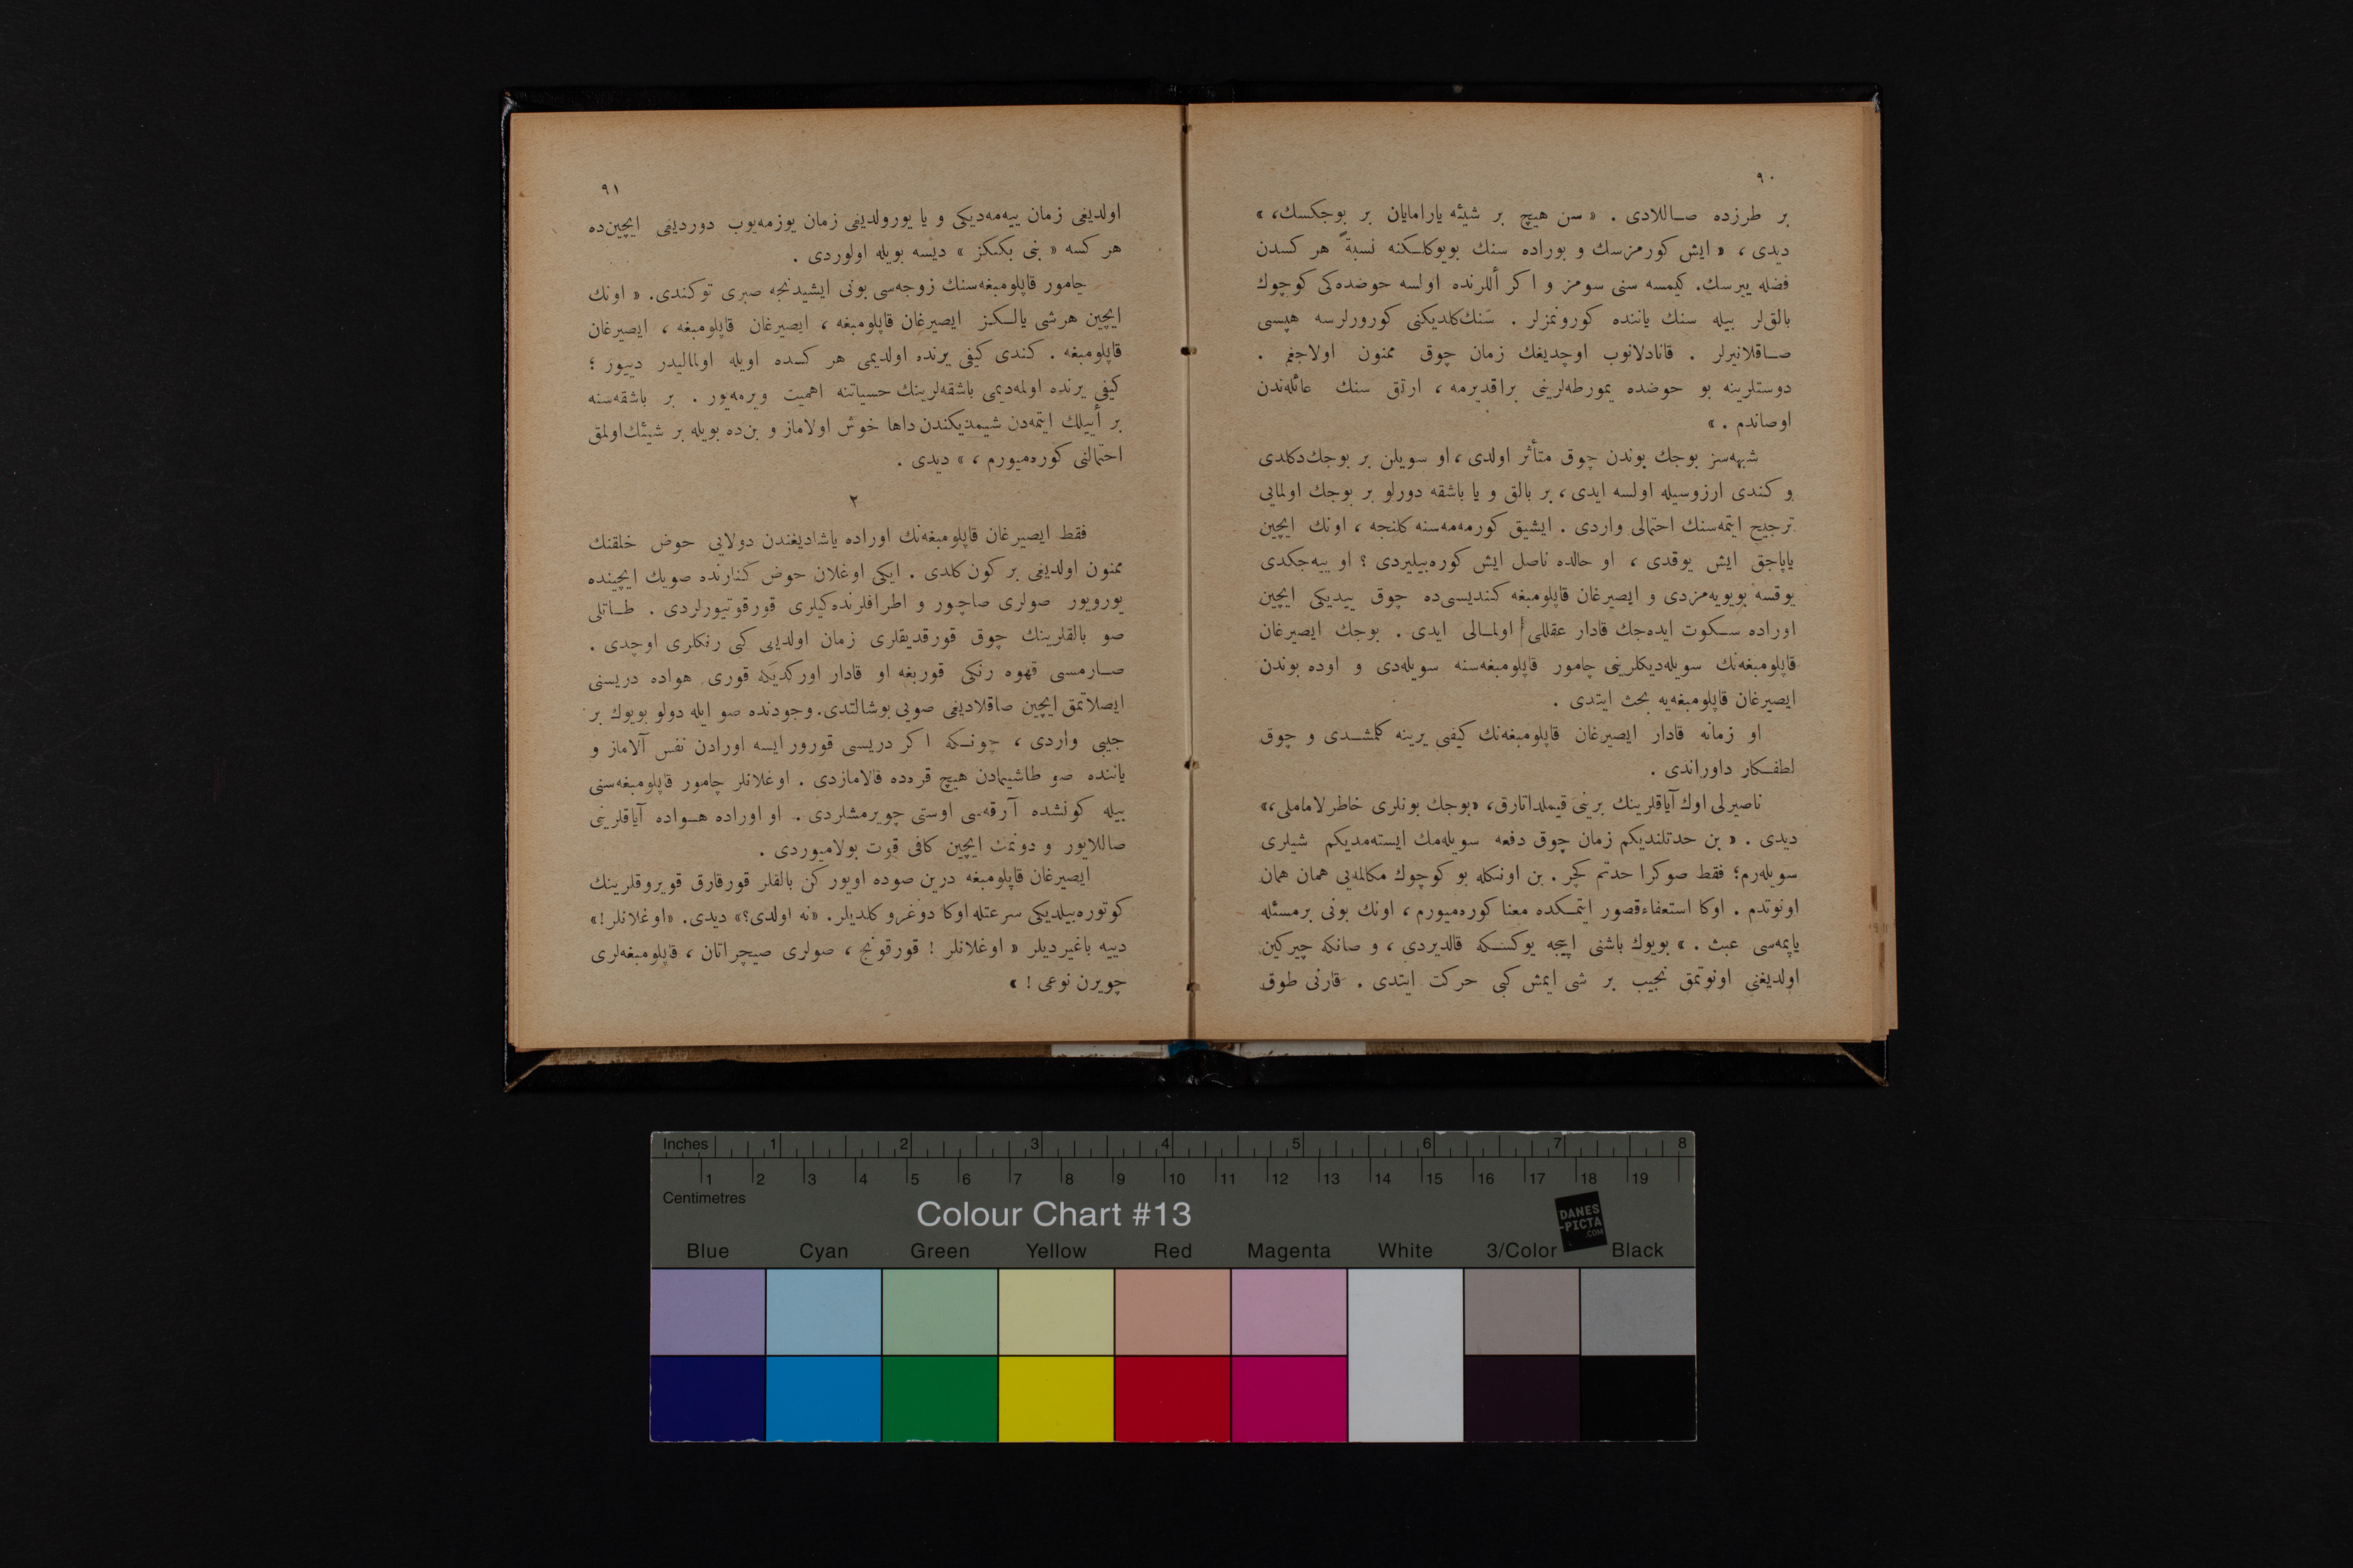 ٩٠
بر طرزده صاللادی . « سن هیچ بر شیئه یارامایان بر بوجكسك، »
دیدی ، « ایش كورمزسك و بوراده سنك بویوكلكنه نسبةً هر كسدن
فضله ییرسك. كیمسه سنی سومز و اكر أللرنده اولسه حوضده‌كی كوچوك
بالق‌لر بیله سنك یاننده كورونمزلر . سنك‌كلدیكنی كورورلرسه هپسی
صاقلانیرلر . قانادلانوب اوچدیغك زمان چوق ممنون اولاجغم .
دوستلرینه بو حوضده یمورطه‌لرینی براقدیرمه ، ارتق سنك عائله‌ندن
اوصاندم . »
شبهه‌سز بوجك بوندن چوق متأثر اولدی ، او سویلن بر بوجك‌دكلدی
و كندی ارزوسیله اولسه ایدی ، بر بالق و یا باشقه دورلو بر بوجك اولمایی
ترجیح ایتمه‌سنك احتمالی واردی . ایشیق كورمه‌مه‌سنه كلنجه ، اونك ایچین
یاپاجق ایش یوقدی ، او حالده ناصل ایش كوره‌بیلیردی ؟ او ییه‌جكدی
یوقسه بویویه‌مزدی و ایصیرغان قاپلومبغه كندیسی‌ده چوق ییدیكی ایچین
اوراده سكوت ایده‌جك قادار عقللی اولمالی ایدی . بوجك ایصیرغان
قاپلومبغه‌نك سویله‌دیكلرینی چامور قاپلومبغه‌سنه سویله‌دی و اوده بوندن
ایصیرغان قاپلومبغه‌یه بحث ایتدی .
او زمانه قادار ایصیرغان قاپلومبغه‌نك كیفی یرینه كلمشدی و چوق
لطفكار داوراندی .
ناصیرلی اوك آیاقلرینك برینی قیملداتارق، «بوجك بونلری خاطرلاماملی،»
دیدی . « بن حدتلندیكم زمان چوق دفعه سویله‌مك ایسته‌مدیكم شیلری
سویله‌رم؛ فقط صوكرا حدتم كچر . بن اونكله بو كوچوك مكالمه‌یی همان همان
اونوتدم . اوكا استعفاءقصور ایتمكده معنا كوره‌میورم ، اونك بونی برمسئله
یاپمه‌سی عبث . » بویوك باشنی اییجه یوكسكه قالدیردی ، و صانكه چیركین
اولدیغنی اونوتمق نجیب بر شی ایمش كبی حركت ایتدی . قارنی طوق
٩١
اولدیغی زمان ییه‌مه‌دیكی و یا یورولدیغی زمان یوزمه‌یوب دوردیغی ایچین‌ده
هر كسه « بنی بكنكز » دیسه بویله اولوردی .
چامور قاپلومبغه‌سنك زوجه‌سی بونی ایشیدنجه صبری توكندی. « اونك
ایچین هرشی یالكز ایصیرغان قاپلومبغه ، ایصیرغان قاپلومبغه ، ایصیرغان
قاپلومبغه . كندی كیفی یرنده اولدیمی هر كسده اویله اولمالیدر دییور ؛
كیفی یرنده اولمه‌دیمی باشقه‌لرینك حسیاتنه اهمیت ویرمه‌یور . بر باشقه‌سنه
بر أییلك ایتمه‌دن شیمدیكندن داها خوش اولاماز و بن‌ده بویله بر شیئك‌اولمق
احتمالنی كوره‌میورم ، » دیدی .
٢
فقط ایصیرغان قاپلومبغه‌نك اوراده یاشادیغندن دولایی حوض خلقنك
ممنون اولدیغی بر كون كلدی . ایكی اوغلان حوض كنارنده صویك ایچینده
یورویور صولری صاچور و اطرافلرنده‌كیلری قورقوتیورلردی . طاتلی
صو بالقلرینك چوق قورقدیقلری زمان اولدیغی كبی رنكلری اوچدی .
صارمسی قهوه رنكی قوربغه او قادار اوركدیكه قوری هواده دریسنی
ایصلاتمق ایچین صاقلادیغی صویی بوشالتدی. وجودنده صو ایله دولو بویوك بر
جیبی واردی ، چونكه اكر دریسی قورور ایسه اورادن نفس آلاماز و
یاننده صو طاشیمادن هیچ قره‌ده قالامازدی . اوغلانلر چامور قاپلومبغه‌سنی
بیله كونشده آرقه‌سی اوستی چویرمشلردی . او اوراده هواده آیاقلرینی
صاللایور و دونمك ایچین كافی قوت بولامیوردی .
ایصیرغان قاپلومبغه درین صوده اویور كن بالقلر قورقارق قویروقلرینك
كوتوره‌بیلدیكی سرعتله اوكا دوغرو كلدیلر. «نه اولدی؟» دیدی. «اوغلانلر!»
دییه باغیردیلر « اوغلانلر ! قورقونج ، صولری صیچراتان ، قاپلومبغه‌لری
چویرن نوعی ! »
Inches 1 2 3 4 5 6 7 8
1 2 3 4 5 6 7 8 9 10 11 12 13 14 15 16 17 18 19
Centimetres
Colour Chart #13
DANES
-PICTA
.COM
Blue Cyan Green Yellow Red Magenta White 3/Color Black